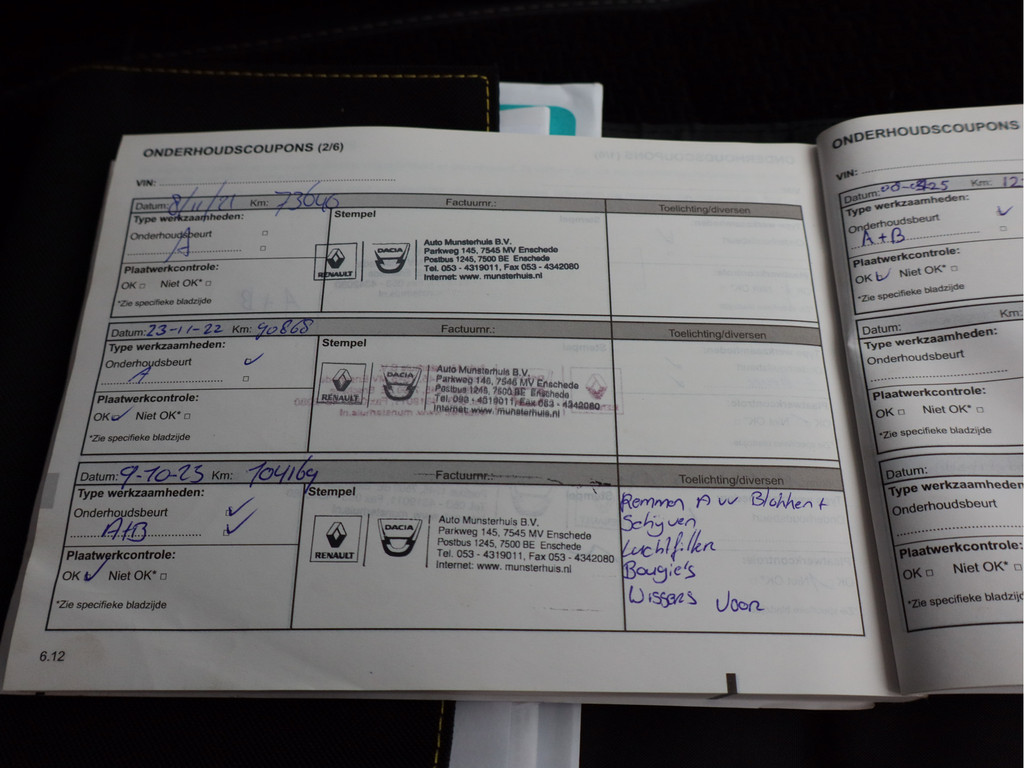 ONDERHOUDSCOUPONS (2/6)
VIN:
Datum: 8/11/21 Km: 73646 Factuurnr.: Toelichting/diversen
Type werkzaamheden:
Onderhoudsbeurt
A
Plaatwerkcontrole:
OK Niet OK*
*Zie specifieke bladzijde
Stempel
RENAULT
DACIA
Auto Munsterhuis B.V.
Parkweg 145, 7545 MV Enschede
Postbus 1245, 7500 BE Enschede
Tel. 053 - 4319011, Fax 053 - 4342080
Internet: www. munsterhuis.nl
Datum: 23-11-22 Km: 90868 Factuurnr.: Toelichting/diversen
Type werkzaamheden:
Onderhoudsbeurt
A
Plaatwerkcontrole:
OK Niet OK*
*Zie specifieke bladzijde
Stempel
RENAULT
DACIA
Auto Munsterhuis B.V.
Parkweg 145, 7545 MV Enschede
Postbus 1245, 7500 BE Enschede
Tel. 053 - 4319011, Fax 053 - 4342080
Internet: www. munsterhuis.nl
Datum: 9-10-23 Km: 104169 Factuurnr.: Toelichting/diversen
Type werkzaamheden:
Onderhoudsbeurt
A+B
Plaatwerkcontrole:
OK Niet OK*
*Zie specifieke bladzijde
Stempel
RENAULT
DACIA
Auto Munsterhuis B.V.
Parkweg 145, 7545 MV Enschede
Postbus 1245, 7500 BE Enschede
Tel. 053 - 4319011, Fax 053 - 4342080
Internet: www. munsterhuis.nl
Remmen A vv Blokken +
Schijven
Luchtfilter
Bougie's
Wissers Voor
6.12
ONDERHOUDSCOUPONS
VIN:
Datum: Km: 12
Type werkzaamheden:
Onderhoudsbeurt
A+B
Plaatwerkcontrole:
OK Niet OK*
*Zie specifieke bladzijde
Datum: Km:
Type werkzaamheden:
Onderhoudsbeurt
Plaatwerkcontrole:
OK Niet OK*
*Zie specifieke bladzijde
Datum:
Type werkzaamheden
Onderhoudsbeurt
Plaatwerkcontrole:
OK Niet OK*
*Zie specifieke bladzij